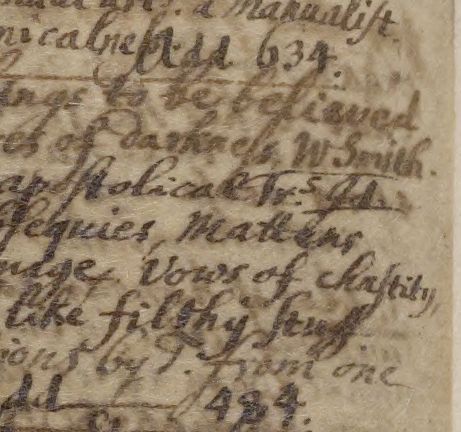 a Manualist.
nicalness. Add 634.
ings to be believed
es of darkness, W Smith.
apostolical Tr.s Id.
sequies, Mattens
nage. Vows of chastity,
like filthy stuff
ions by T. from one
dd 484.